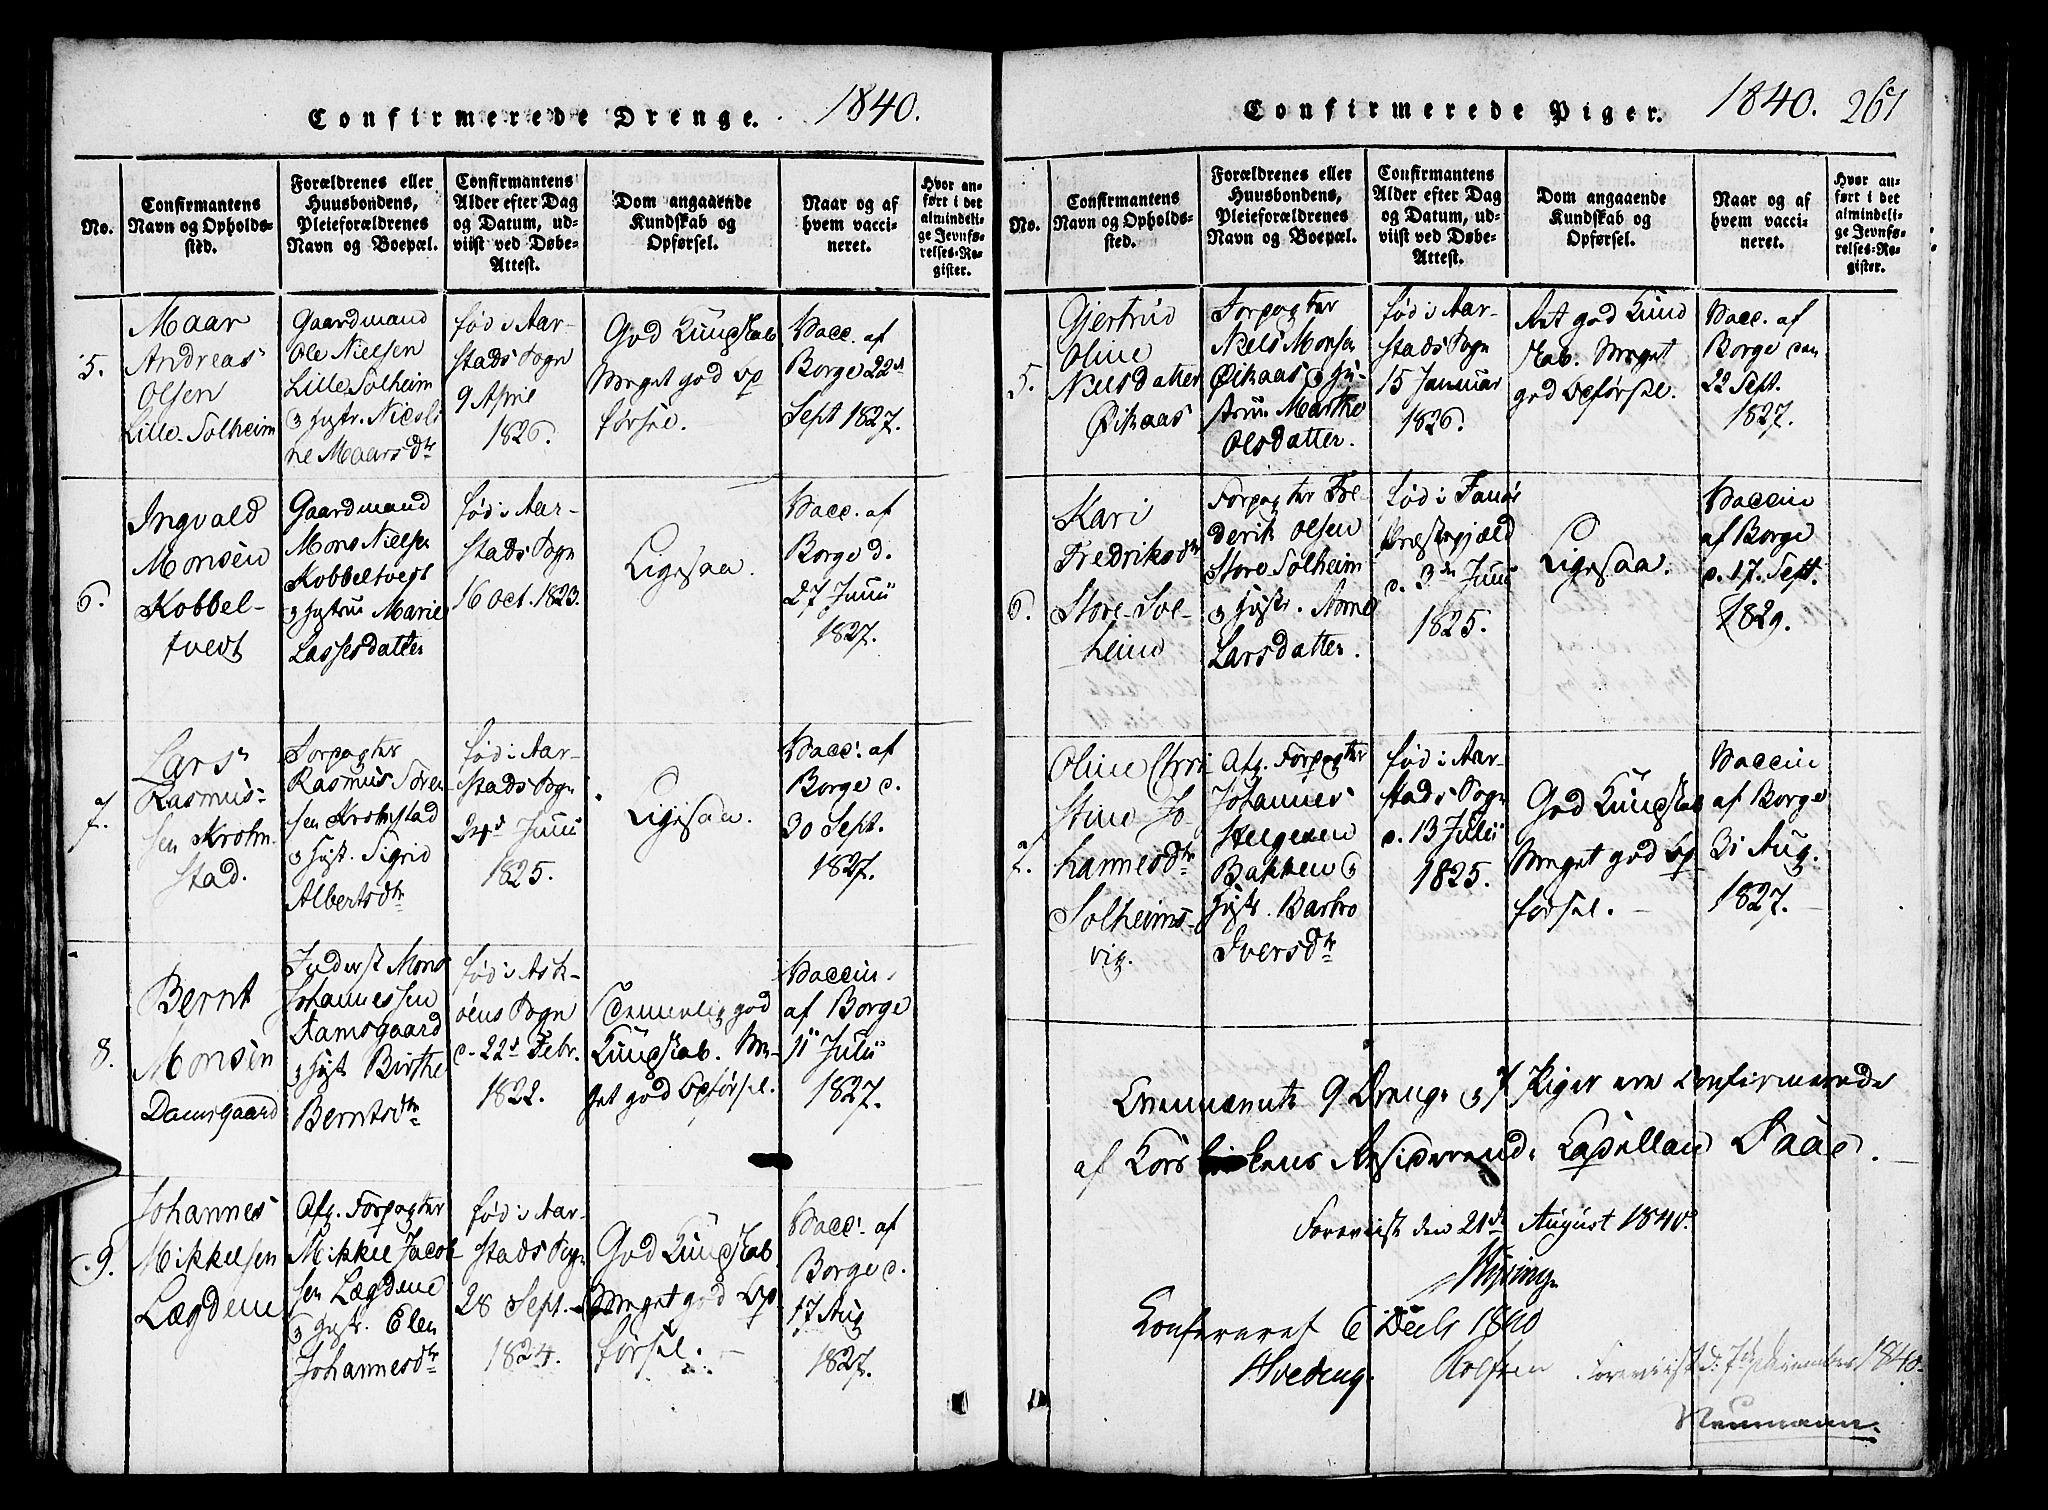 Confirmerede Drenge. 1840.
No.
Confirmantens
Navn og Opholds-
sted.
Forældrenes eller
Huusbondens,
Pleieforældrenes
Navn og Boepæl.
Confirmantens
Alder efter Dag
og Datum, ud-
viist ved Døbe-
Attest.
Dom angaaende
Kundskab og
Opførsel.
Naar og af
hvem vacci-
neret.
Hvor an-
ført i det
almindeli-
ge Jevnfø-
relses-Re-
gister.
5.
Maar
Andreas
Olsen
Lille-Solheim
Gaardmand
Ole Nielsen
Lille Solheim
og Hustr. Nicoli
ne Maarsdtr
født i Aar-
stads Sogn
9 April
1826.
God Kundskab
Meget god Op
førsel.
Vacc. af
Borge 22d
Sept 1827.
6.
Ingvald
Monsen
Kobbel-
tvedt
Gaardmand
Mons Nielsen
Kobbeltvedt
og Hustru Marie
Lassesdatter
født i Aar-
stads Sogn
16 Oct. 1823.
Ligesaa.
Vacc. af
Borge d.
27 Junii
1827.
7.
Lars
Rasmus-
sen Krohn-
stad.
Forpagter
Rasmus Søren
sen Krohnstad
og Hust. Sigrid
Albertsdtr
født i Aar-
stads Sogn
24d Junii
1825.
Ligesaa.
Vacc. af
Borge d.
30 Sept.
1827.
8.
Bernt
Monsen
Damsgaard
Inderst Mons
Johannessen
Damsgaard
og Hust. Birthe
Berntsdtr
født i Ask-
øens Sogn
d. 22d Febr.
1822.
Temmelig god
Kundskab. Me-
get god Opførsel.
Vaccin.
af Borge
11 Julii
1827.
9.
Johannes
Mikkelsen
Lægdene
Afg. Forpagter
Mikkel Jacob
sen Lægdene
og Hustr. Elen
Johannesdtr
født i Aar-
stads Sogn
28 Sept.
1824.
God Kundskab
Meget god Op
førsel.
Vacc. af
Borge d.
17 Aug
1827.
Confirmerede Piger. 1840. 261
No.
Confirmantens
Navn og Opholds-
sted.
Forældrenes eller
Huusbondens,
Pleieforældrenes
Navn og Boepæl.
Confirmantens
Alder efter Dag
og Datum, ud-
viist ved Døbe-
Attest.
Dom angaaende
Kundskab og
Opførsel.
Naar og af
hvem vacci-
neret.
Hvor an-
ført i det
almindeli-
ge Jevnfø-
relses-Re-
gister.
5.
Gjertrud
Oline
Nielsdatter
Øikaas
Forpagter
Niels Monsen
Øikaas og Hu-
stru Marthe
Olsdatter.
født i Aar-
stads Sogn
15 Januar
1826.
god Kund
skab. Meget
god Opførsel.
Vacc. af
Borge den
22 Sept.
1827.
6.
Kari
Fredriksdtr
Store-Sol-
heim
Forpagter Fre-
derik Olsen
Store-Solheim
og Hustr. Anne
Larsdatter.
født i Fanøe
Præstegjæld
d. 3de Junii
1825.
Ligesaa.
Vaccin
af Borge
d. 17. Sept.
1829.
7.
Oline Chri-
stine Jo-
hannesdtr
Solheims-
vig.
Afg. Forpagter
Johannes
Bakken og
Hustr. Barbro
Iversdtr
født i Aar-
stads Sogn
d. 13 Julii
1825.
God Kundskab
Meget god Op
førsel.
Vaccin
af Borge
31 Aug.
1827.
9 Drenge og 7 Piger ere Confirmerede
af Kors kirkens Residerende Capellan Daae.
Foreviist den 21de August 1840.
Conferered 6 Decb 1840
Hveding. Rolfsen Foreviist d. 7de December 1840.
Neumann.